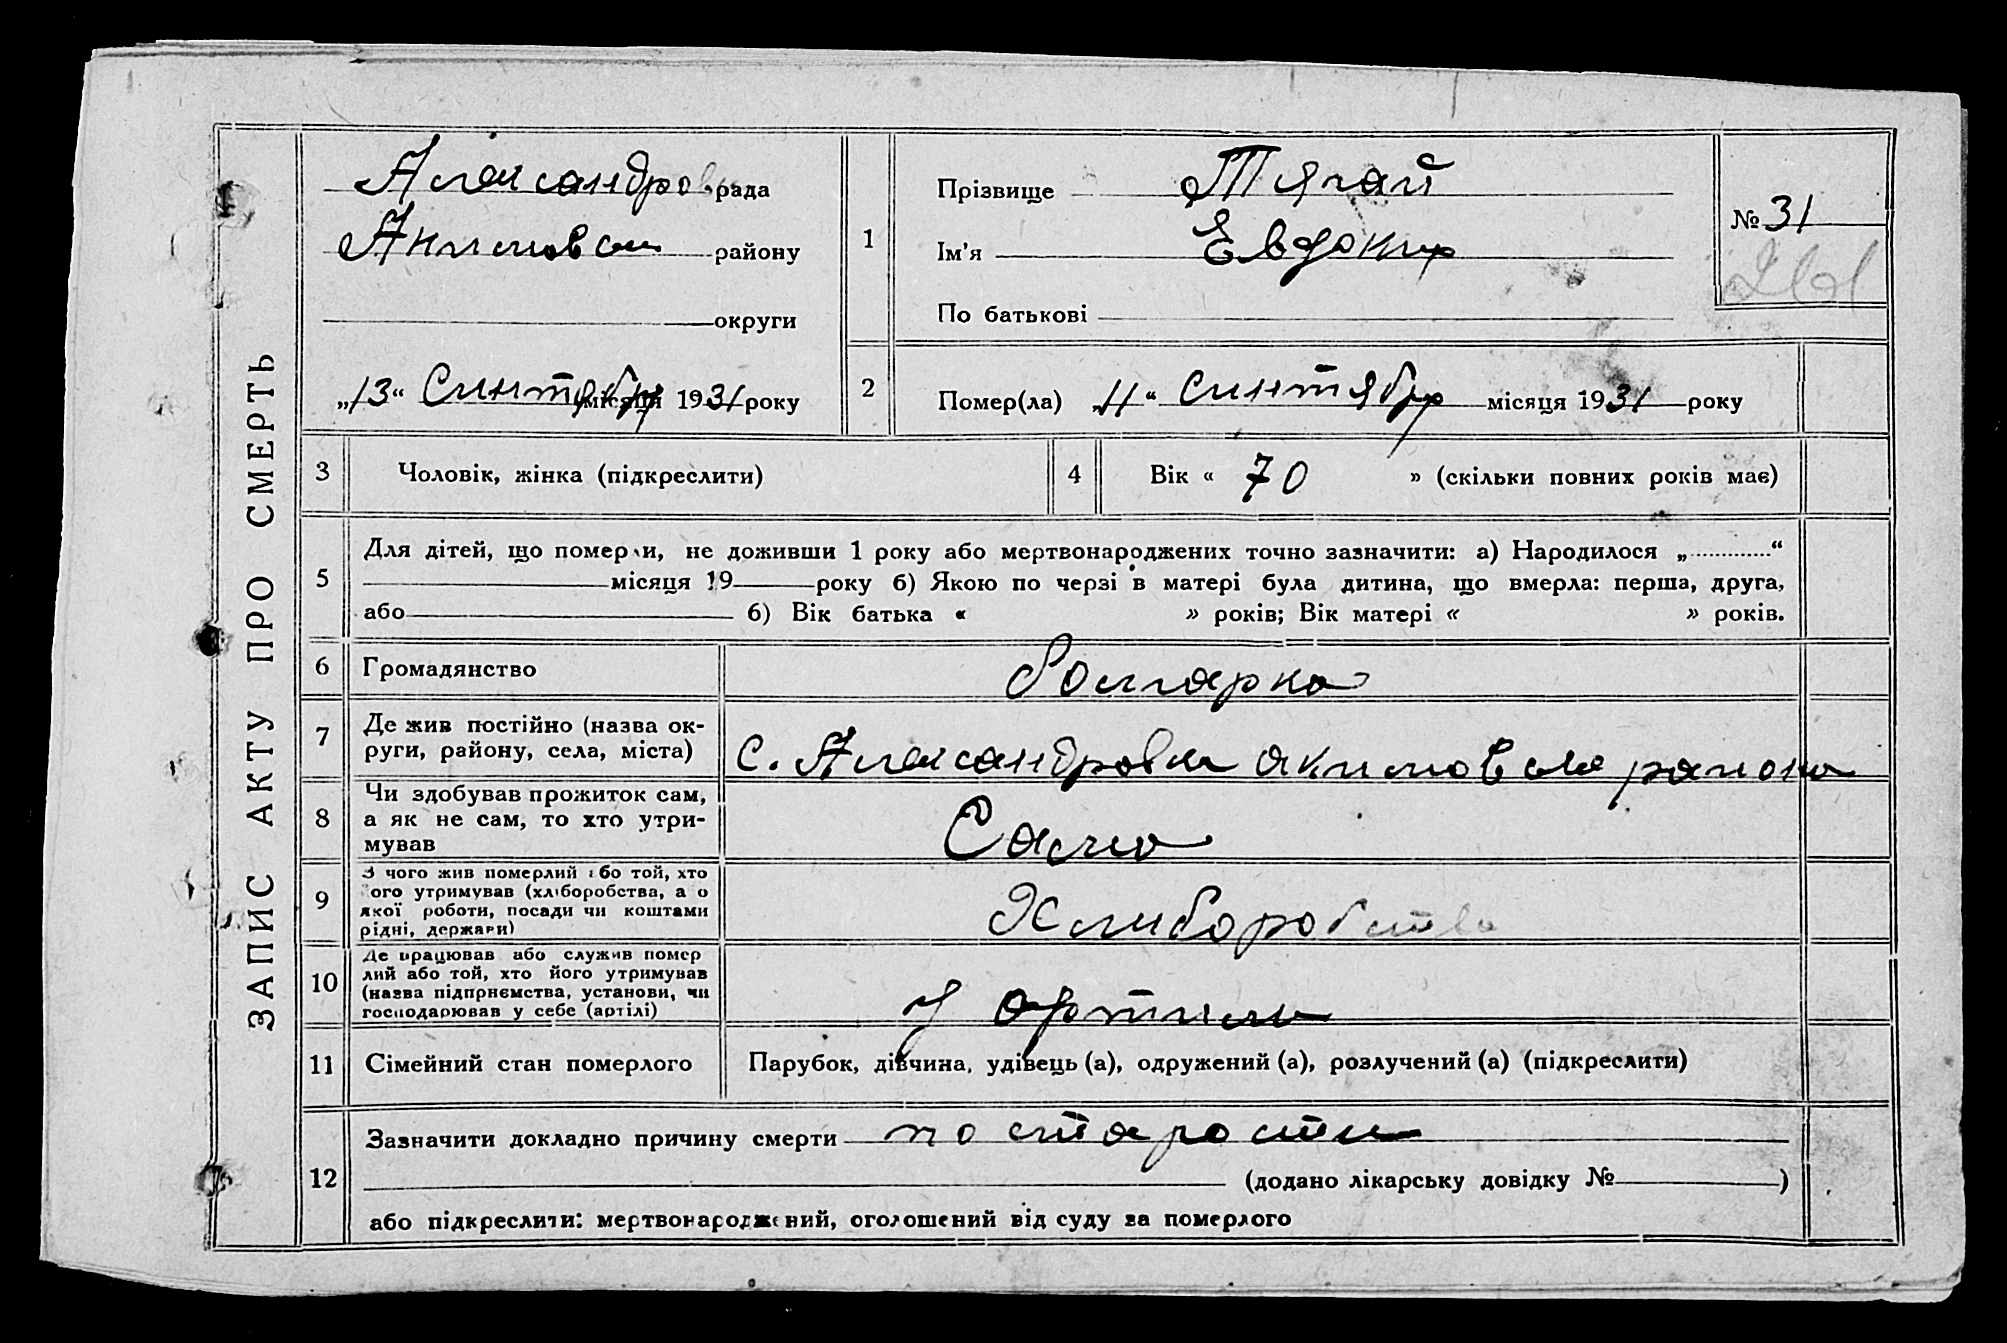 ЗАПИС АКТУ ПРО СМЕРТЬ
Александров рада
Акимовски району
округи
„13“ Синтября місяця 1931 року
1
Прізвище Тягай
Ім'я Евдокия
По батькові
№ 31
2
Помер(ла) „11“ Синтября місяця 1931 року
3 Чоловік, жінка (підкреслити)
4 Вік « 70 » (скільки повних років має)
5
Для дітей, що померли, не доживши 1 року або мертвонароджених точно зазначити: а) Народилося „ “
місяця 19 року б) Якою по черзі в матері була дитина, що вмерла: перша, друга,
або б) Вік батька « » років; Вік матері « » років.
6 Громадянство
7 Де жив постійно (назва ок-
руги, району, села, міста) с. Александровка акимовска района
8 Чи здобував прожиток сам,
а як не сам, то хто утри-
мував Сама
9 З чого жив померлий або той, хто
його утримував (хліборобства, а о
якої роботи, посади чи коштами
рідні, держави) Хлиборобства
10 Де працював або служив помер
лий або той, хто його утримував
(назва підпрнємства, установи, чи
господарював у себе (артілі) У артили
11 Сімейний стан померлого Парубок, дівчина, удівець (а), одружений (а), розлучений (а) (підкреслити)
12
Зазначити докладно причину смерти по старости
(додано лікарську довідку № )
або підкреслити: мертвонароджений, оголошений від суду за померлого